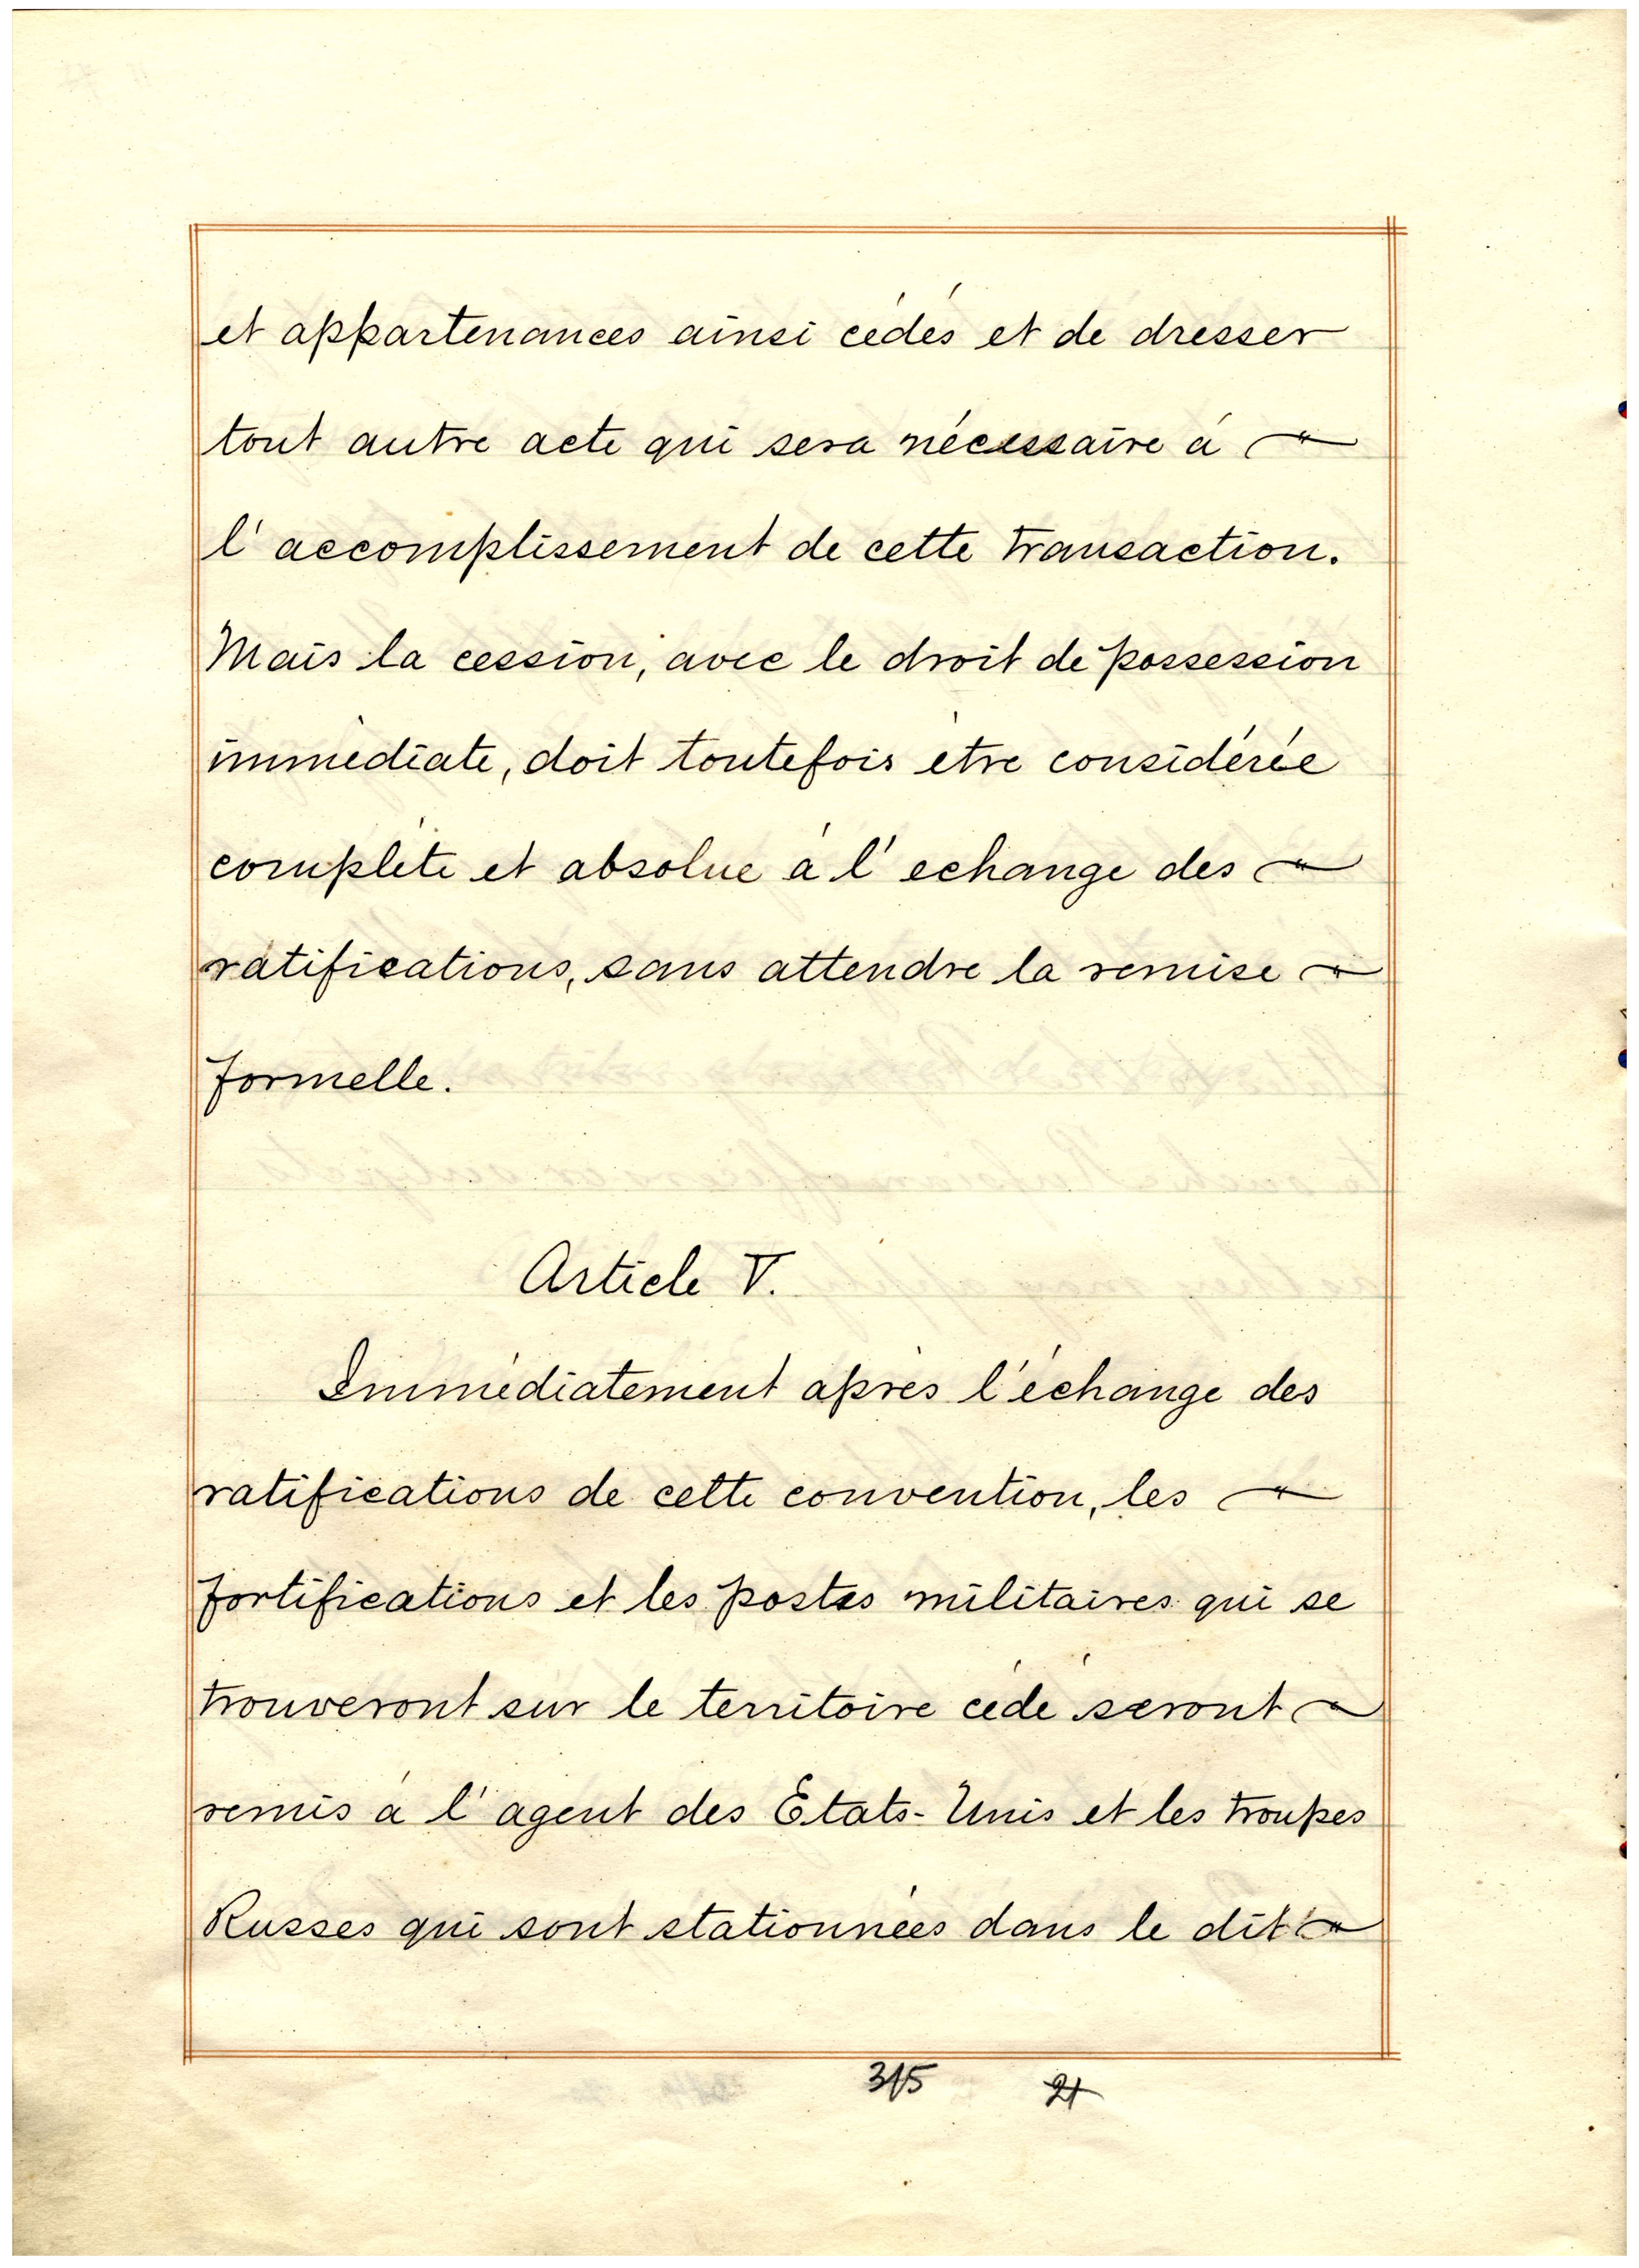 et appartenances ainsi cédés et de dresser
tout autre acte qui sera nécessaire à
l'accomplissement de cette transaction.
Mais la cession, avec le droit de possession
immédiate, doit toutefois être considérée
complète et absolue à l'échange des
ratifications, sans attendre la remise
formelle.
Article V.
Immédiatement après l'échange des
ratifications de cette convention, les
fortifications et les postes militaires qui se
trouveront sur le territoire cédé seront
remis à l'agent des Etats-Unis et les troupes
Russes qui sont stationnées dans le dit
315